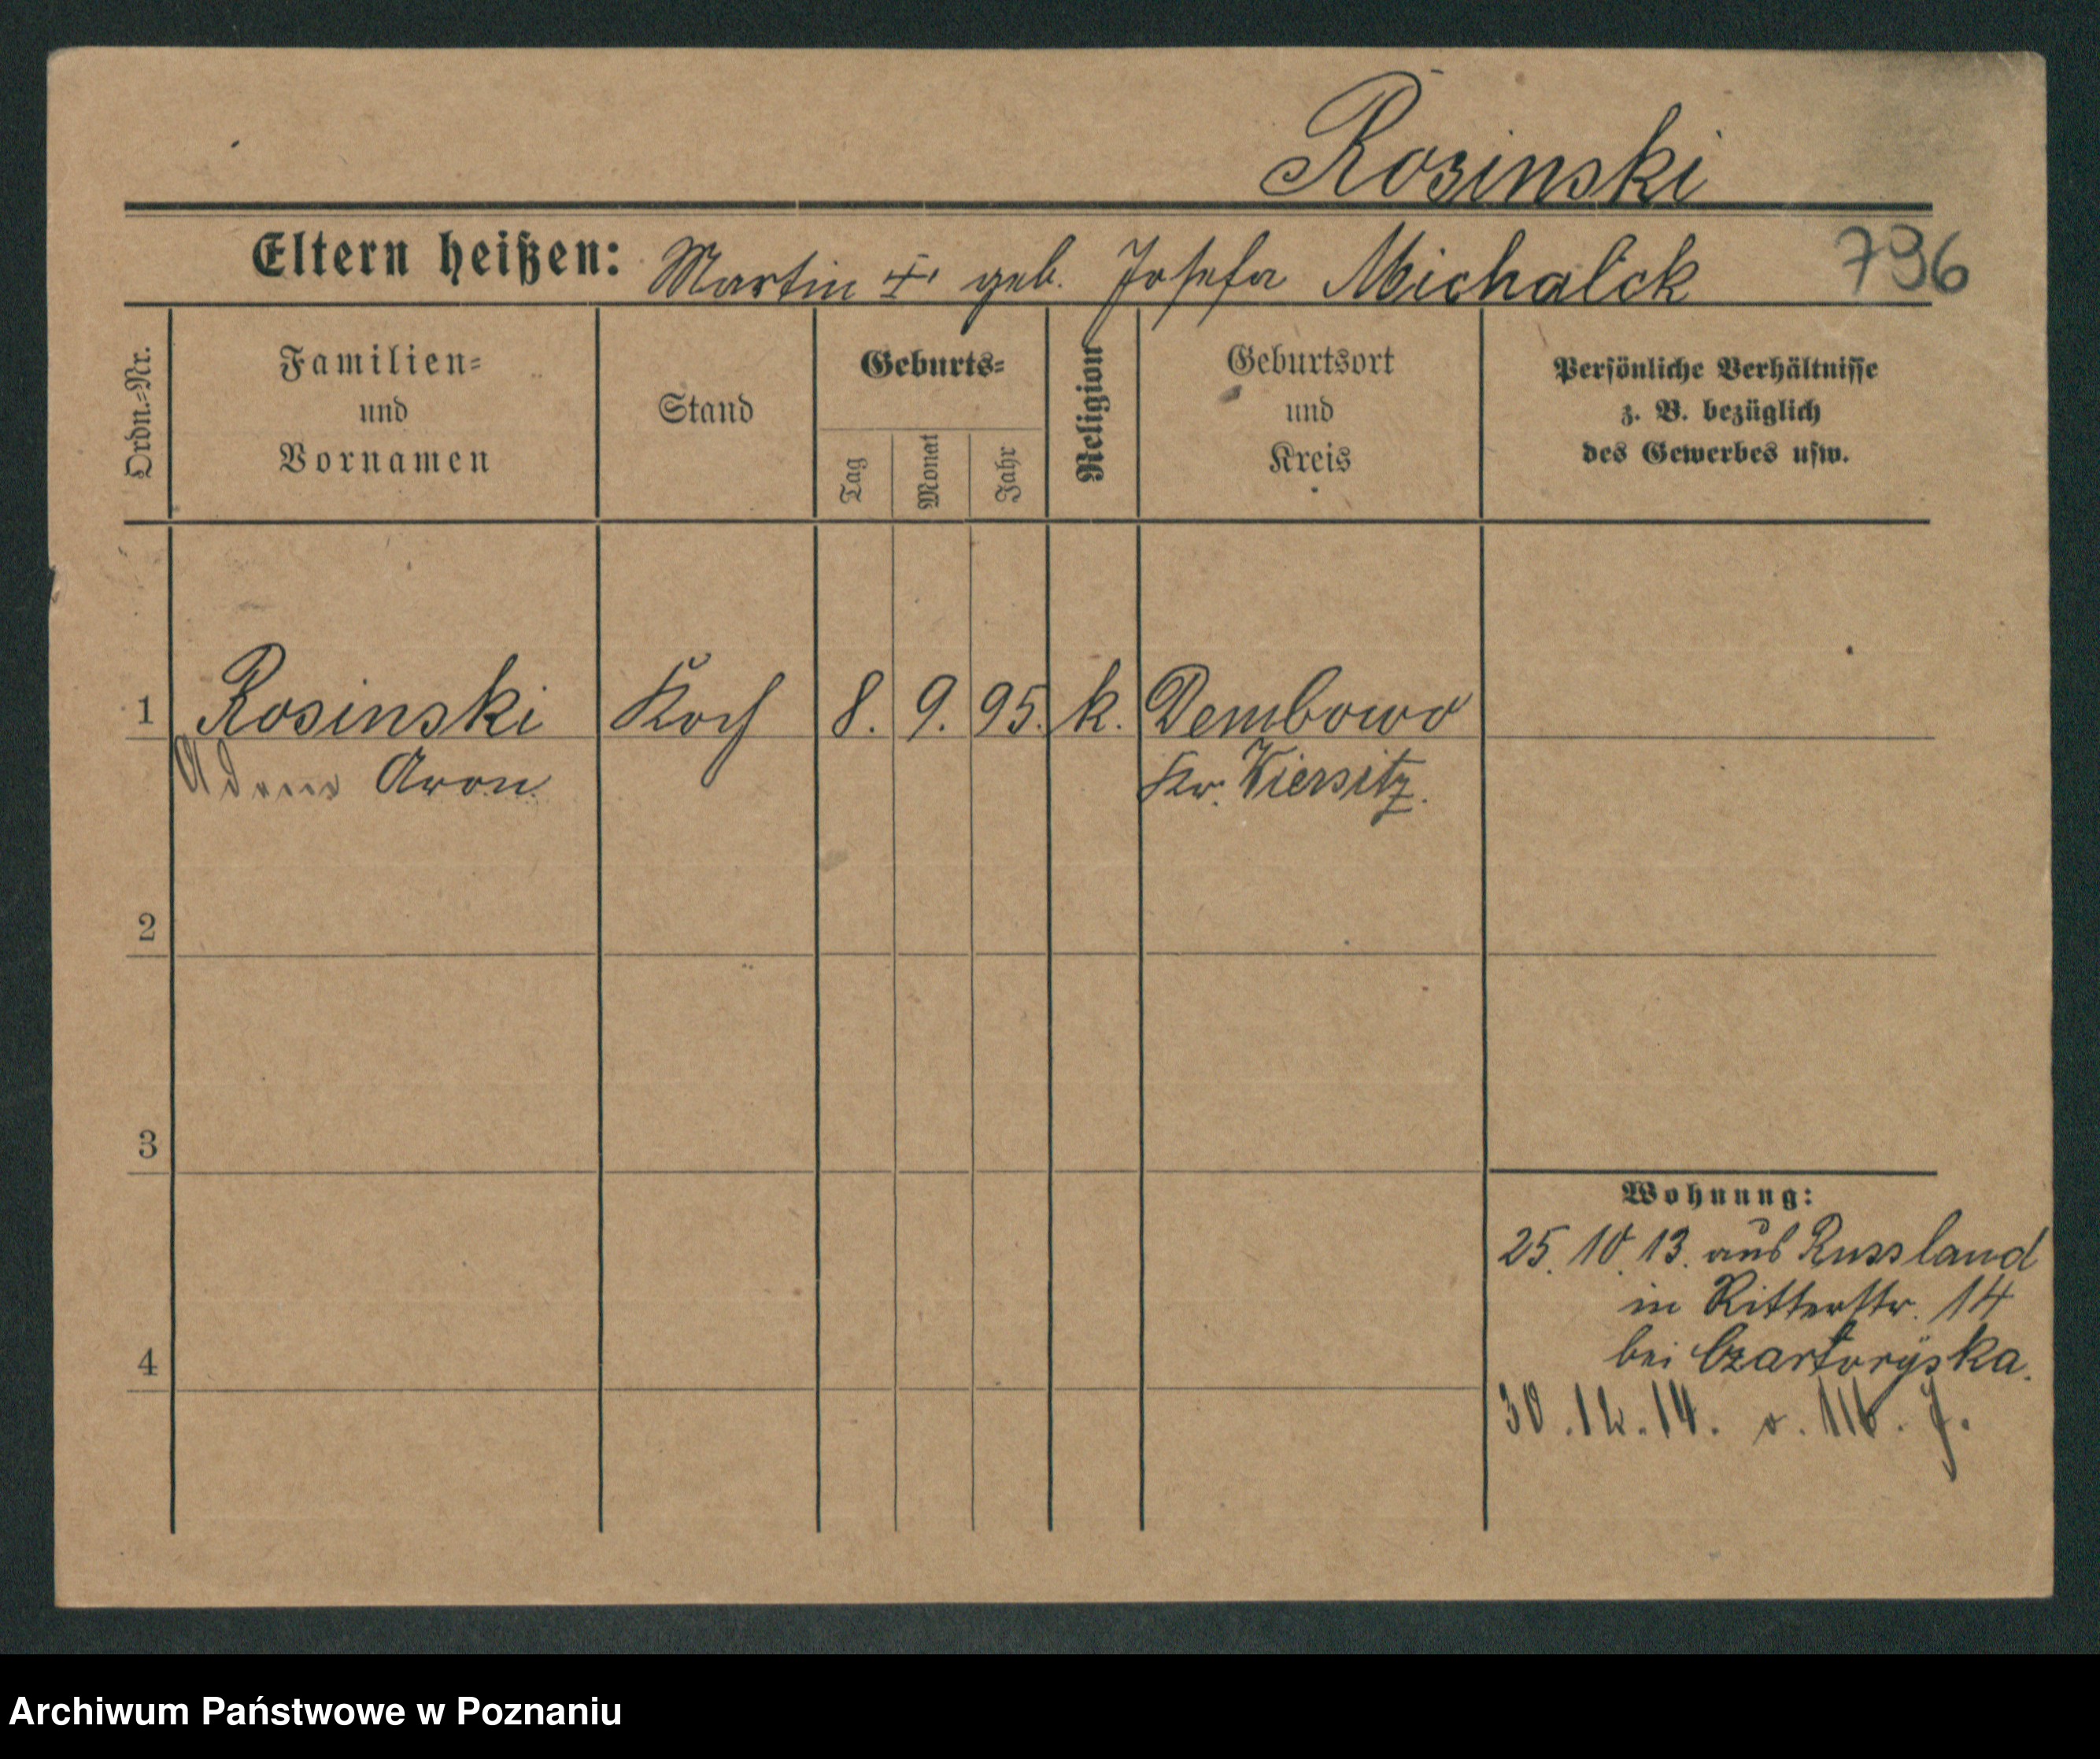 Rosinski
Eltern heißen: Martin geb. Josefa Michalck 796
Ordn.=Nr.
Familien=
und
Vornamen
Stand
Geburts=
Tag
Monat
Jahr
Religion
Geburtsort
und
Kreis
Persönliche Verhältnisse
z. B. bezüglich
des Gewerbes usw.
1 Rosinski Koch 8. 9. 95. k. Dembowo
Aron Kr. Wiersitz.
2
3
4
Wohnung:
25. 10. 13. aus Russland
in Ritterstr. 14
bei Czartoryska.
30. 12. 14.
Archiwum Państwowe w Poznaniu